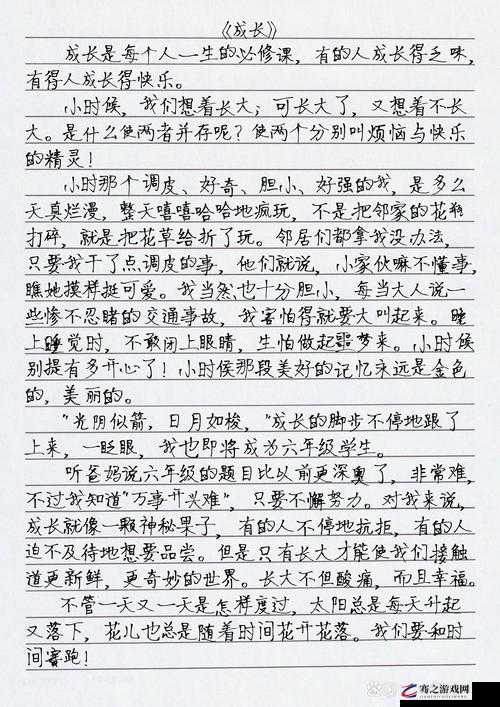 《成长》
成长是每个人一生的必修课，有的人成长得乏味，
有得人成长得快乐。
小时候，我们想着长大；可长大了，又想着不长
大。是什么使两者并存呢？使两个分别叫烦恼与快乐
的精灵！
小时那个调皮、好奇、胆小、好强的我，是多么
天真烂漫，整天嘻嘻哈哈地疯玩，不是把邻家的花瓶
打碎，就是把花草给折了玩。邻居们都拿我没办法，
只要我干了点调皮的事，他们就说，小家伙嘛不懂事，
瞧她摸样挺可爱。我当然也十分胆小，每当大人说一
些惨不忍睹的交通事故，我害怕得就要大叫起来。晚
上睡觉时，不敢闭上眼睛，生怕做起噩梦来。小时候
别提有多开心了！小时侯那段美好的记忆永远是金色
的，美丽的。
“光阴似箭，日月如梭，”成长的脚步不停地跟了
上来，一眨眼，我也即将成为六年级学生。
听爸妈说六年级的题目比以前更深奥了，非常难，
不过我知道“万事开兴难”，只要不懈努力。对我来说，
成长就像一颗神秘果子，有的人不停地抗拒，有的人
迫不及待地想要品尝。但是只有长大才能使我们接触
道更新鲜，更奇妙的世界。长大不但酸痛，而且幸福。
不管一天又一天是怎样度过，太阳总是每天升起
又落下，花儿也总是随着时间花开花落。我们要和时
间赛跑！
骞之游戏网